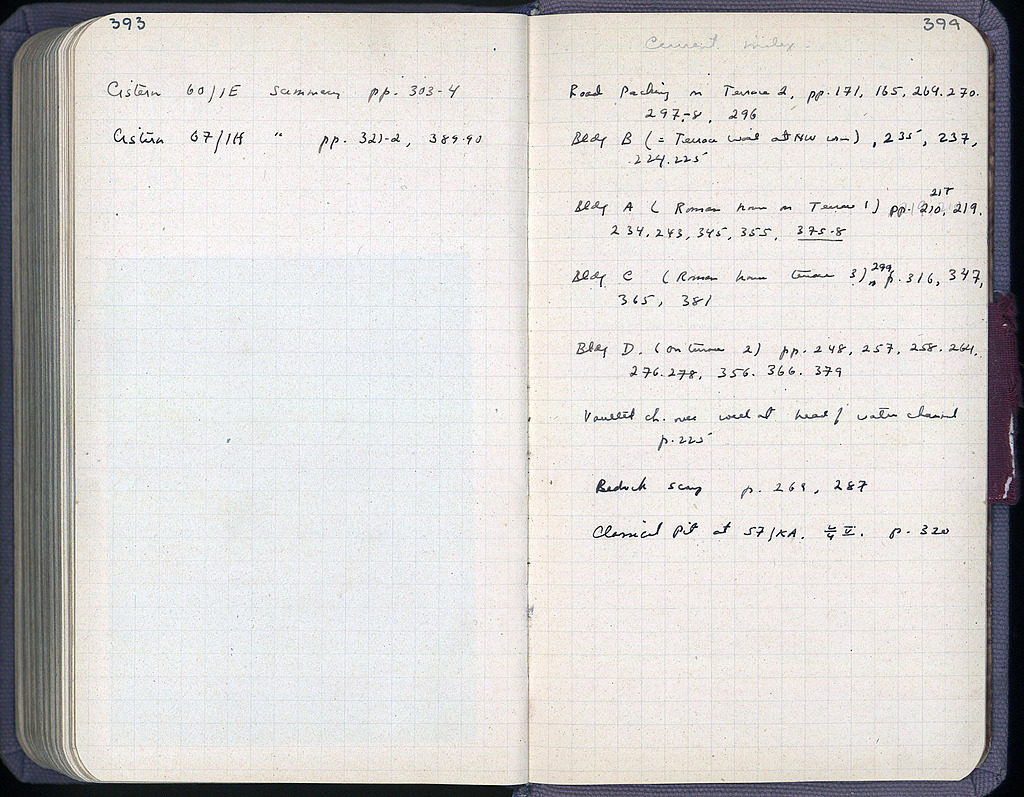 393
Cistern 60/1E summary pp. 303-4
Cistern 67/1H " pp. 321-2, 389-90
394
Current index.
Road Packing on Terrace 2, pp. 171, 165, 269. 270.
297-8, 296
Bldg B (= Terrace wall at NW ), 235, 237,
224. 225
217
Bldg A (Roman house on Terrace 1) pp. 210, 219.
234, 243, 345, 355, 375-8
299
Bldg C (Roman house terrace 3) p. 316, 347,
365, 381
Bldg D. (on terrace 2) pp. 248, 257, 258. 264.
276. 278, 356. 366. 379
Vaulted ch. over well at head of water channel
p. 225
Bedrock scarp p. 269, 287
Classical Pit at 57/KA. p. 320